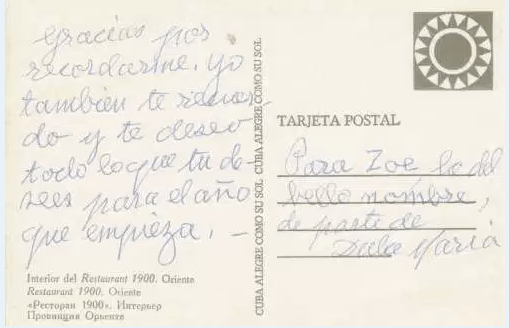 Gracias por
recordarme, yo
también te recuer-
do y te deseo
todo lo que tu de-
sees para el año
que empieza. —
Interior del Restaurant 1900. Oriente
Restaurant 1900. Oriente
«Ресторан 1900». Интерьер
Провинция Орьенте
CUBA ALEGRE COMO SU SOL CUBA ALEGRE COMO SU SOL CUBA ALEGRE COMO SU SOL
TARJETA POSTAL
Para Zoé la del
bello nombre,
de parte de
María